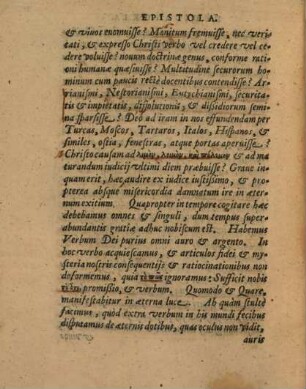 EPISTOLA.
& viuos euomuisse? Monitum fremuisse, nec veri-
tati, & expresso Christi verbo vel credere vel ce-
dere voluisse? nouum doctrinæ genus, conforme ra-
tioni humanæ quæsiuisse? Multitudine securorum ho-
minum cum paucis recte docentibus contendisse? Ar-
rianismi, Nestorianismi, Eutychianismi, securita-
tis & impietatis, dissolutionis, & dissidiorum semi-
na sparsisse? Deo ad iram in nos effundendam per
Turcas, Moscos, Tartaros, Italos, Hispanos, &
similes, ostia, fenestras, atque portas aperuisse?
Christo causam ad & ad ma-
turandum iudicij vltimi diem præbuisse? Graue in-
quam erit, hæc audire ex iudice iustissimo, & pro-
pterea absque misericordia damnatum ire in æter-
num exitium. Quapropter in tempore cogitare hæc
debebamus omnes & singuli, dum tempus super-
abundantis gratiæ adhuc nobiscum est. Habemus
Verbum Dei purius omni auro & argento. In
hoc verbo acquiescamus, & articulos fidei & my-
steria nostris consequentijs & ratiocinationibus non
deformemus, quia ignoramus: Sufficit nobis
promissio, & verbum. Quomodo & Quare,
manifestabitur in æterna luce. Ah quàm stultè
facimus, quòd extra verbum in his mundi fecibus
disputamus de æternis dotibus, quas oculus non vidit,
auris